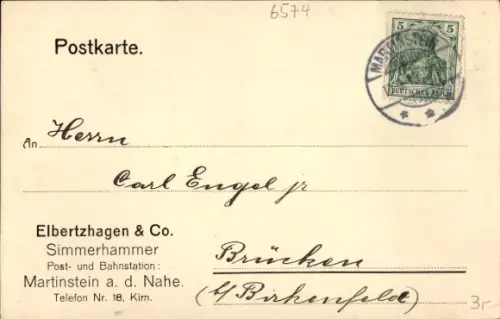 6574
Postkarte.
5 5
MARTINSTEIN
DEUTSCHES REICH
An Herrn
Carl Engel jr
Elbertzhagen & Co.
Simmerhammer
Post- und Bahnstation:
Martinstein a. d. Nahe.
Telefon Nr. 18, Kirn.
Brücken
b/ Birkenfeld)
3,-